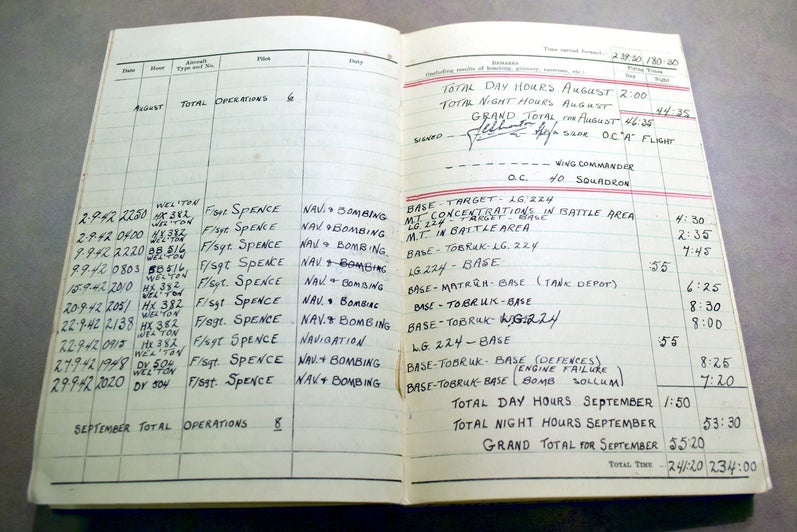 Date Hour Aircraft Type and No. Pilot Duty
AUGUST TOTAL OPERATIONS 6
2-9-42 2250 WEL'TON HX 382 F/SGT. SPENCE NAV. & BOMBING
2-9-42 0400 WEL'TON HX 382 F/SGT. SPENCE NAV. & BOMBING
9-9-42 2220 WEL'TON BB 516 F/SGT. SPENCE NAV. & BOMBING
9-9-42 0803 WEL'TON BB 516 F/SGT. SPENCE NAV. & BOMBING
15-9-42 2010 WEL'TON HX 382 F/SGT. SPENCE NAV. & BOMBING
20-9-42 2051 WEL'TON HX 382 F/SGT. SPENCE NAV. & BOMBING
22-9-42 2138 WEL'TON HX 382 F/SGT. SPENCE NAV. & BOMBING
22-9-42 0915 WEL'TON HX 382 F/SGT. SPENCE NAVIGATION
27-9-42 1948 WEL'TON DV 504 F/SGT. SPENCE NAV. & BOMBING
29-9-42 2020 WEL'TON DV 504 F/SGT. SPENCE NAV. & BOMBING
SEPTEMBER TOTAL OPERATIONS 8
Time carried forward 239:30 180:30
REMARKS Flying Times
(including results of bombing, gunnery, exercises, etc.) Day Night
TOTAL DAY HOURS AUGUST 2:00
TOTAL NIGHT HOURS AUGUST 44:35
GRAND TOTAL FOR AUGUST 46:35
SIGNED O.C. "A" FLIGHT
WING COMMANDER
O.C. 40 SQUADRON
BASE - TARGET - LG. 224
M.T. CONCENTRATIONS IN BATTLE AREA 4:30
LG. 224 - TARGET - BASE
M.T. IN BATTLE AREA 2:35
BASE - TOBRUK - LG. 224 7:45
LG. 224 - BASE :55
BASE - MATRUH - BASE (TANK DEPOT) 6:25
BASE - TOBRUK - BASE 8:30
BASE - TOBRUK - LG. 224 8:00
L.G. 224 - BASE :55
BASE - TOBRUK - BASE (DEFENCES) 8:25
BASE - TOBRUK - BASE (ENGINE FAILURE BOMB SOLLUM) 7:20
TOTAL DAY HOURS SEPTEMBER 1:50
TOTAL NIGHT HOURS SEPTEMBER 53:30
GRAND TOTAL FOR SEPTEMBER 55:20
TOTAL TIME 241:20 234:00